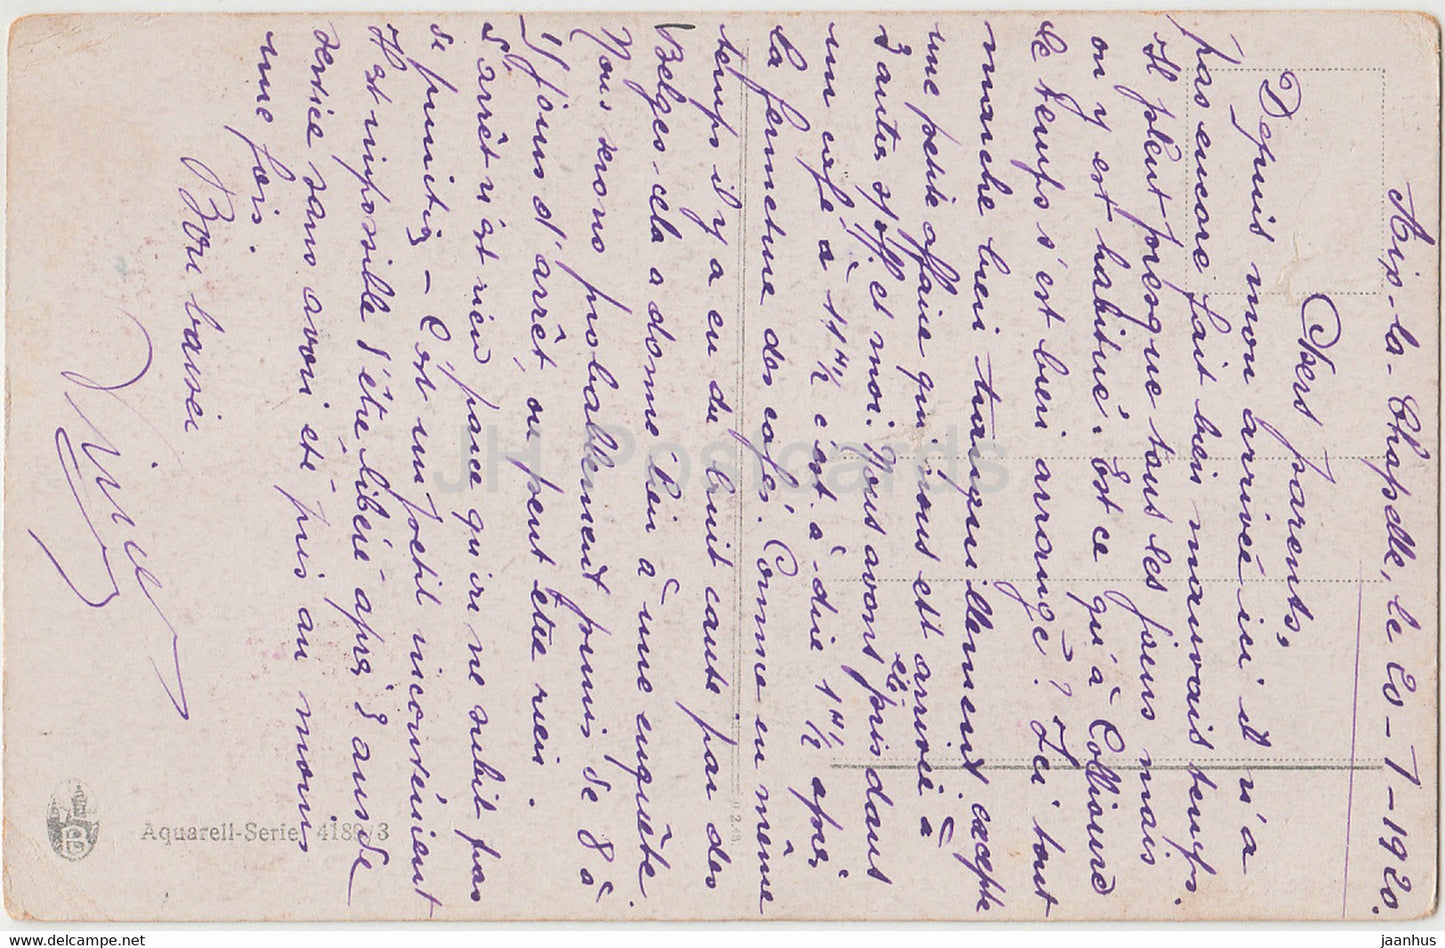 Aix-la-Chapelle, le 20-1-1920.
Chers parents,
Depuis mon arrivée ici il n'a
pas encore fait bien mauvais temps.
Il pleut presque tous les jours mais
on y est habitué. Est ce qu'à Collioure
le temps s'est bien arrangé? Ici tout
marche bien tranquillement excepté
une petite affaire qui nous est arrivée à
3 autres s/off et moi. Nous avons été pris dans
un café à 11 H ½ c'est à-dire 1 H ½ après
la fermeture des cafés. Comme en même
temps il y a eu du bruit causé par des
Belges - cela a donné lieu à une enquête.
Nous serons probablement punis de 8 à
15 jours d'arrêt, ou peut être rien.
d'arrêt n'est rien parce qu'on ne subit pas
de punition - C'est un petit inconvénient
Il est impossible d'être libéré après 3 ans de
service sans avoir été pris au moins
une fois.
Bon baiser
Aquarell-Serie 4189/3
JH Postcards
jaanhus